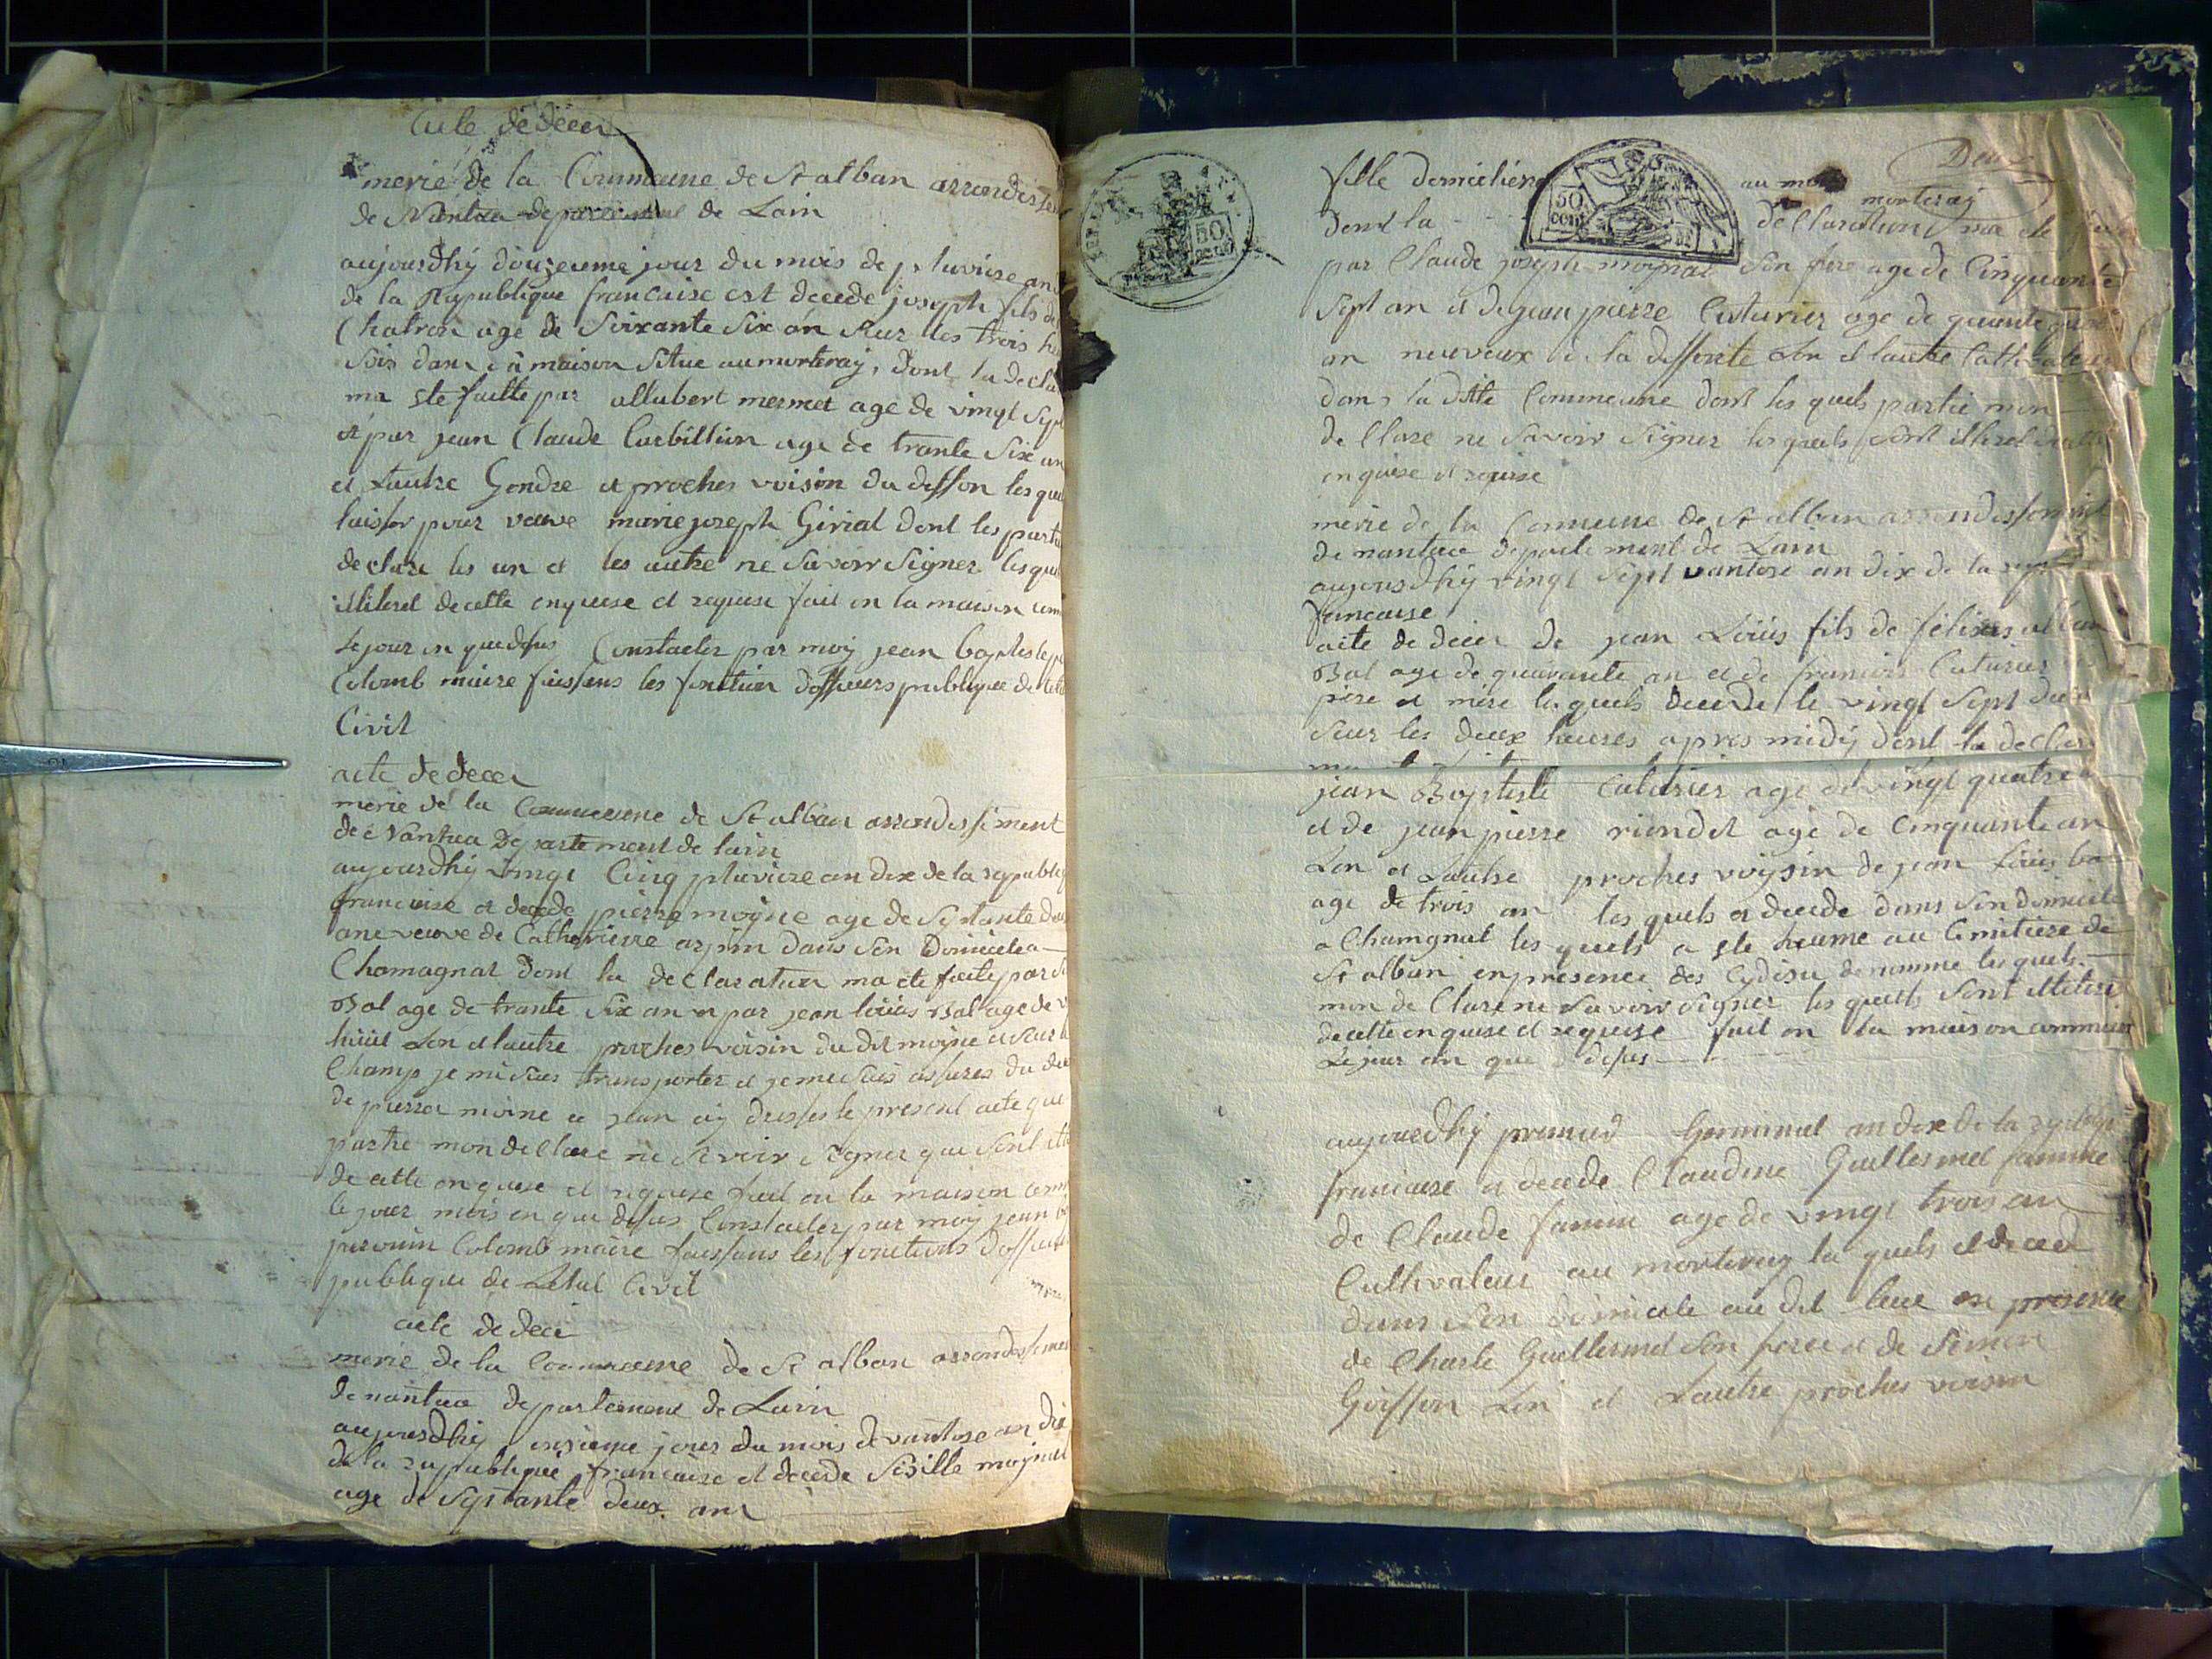 acte de deces
merie de la Commune de St alban arrondissem
de Nantua departement de Lain
aujourdhÿ douzeieme jour du mois de pluviose an
de la Republique francaise est decede joseph fils de
Chatron age de Soixante Six an Sur les trois
Soir dans sa maison Situe au morteraÿ, dont la decla
ma ete faitte par allubert mermet age de vingt Sept
et par jean Claude Curbillion age de trante Six an
et Lautre Gendre et proches voisin du deffon les que
laisser pour veuve marie joseph Girial dont les parti
declare les un et les autre ne Savoir Signer les que
illiteret de cette enquise et requise fait en la maison com
Le jour en que desus Constaeter par moÿ jean baptiste
Colomb maire faissans les fonction dofficiers publique de letat
Civil
acte de deces
merie de la Commune de St alban arrondissiment
de Nantua Departement de lain
aujourdhÿ vingt Cinq pluviose an dix de la republiq
francaise et decede pierre moÿne age de Septante deux
ane veuve de Catherienne arpin dans Son Domicile a
Chamagnat dont la declaration ma ete faite par
Bal age de trante Six an et par jean louis Bal age de
huit Lon et lautre proches voisin du dit moine et Sur le
Champ je me Suis transporter et je me Suis assures du de
de pierra moine ce jean aÿ dresser le present acte que
partie mon declare ne Savoir Signer que Sont
de cette enquise et requise fait en la maison com
le jour mois en que desus Constaeter par moÿ jean
Colomb maire faissans les fonctions doffici
publique de Letat Civil
acte de dece
merie de la Commune de St alban arrondissemen
de nantua departement de Lain
aujourdhÿ onzieme jour du mois de vantose an dix
de la republique francaise et decede Sibille moÿnat
age de Septante deux ans
Deux
fille domiciliere au
morteraÿ
dont la declaration ma ete
par Claude joseph moÿnat Son frere age de Cinquante
Sept an et de jean pierre Cuturier age de
an neuveux de la deffonte Lon et lautre Cathivateur
dans la dite Commune dont les quels partie mon
declare ne Savoir Signer les quels Sont illiteret de cette
enquise et requise
merie de la Commune de St alban arrondissement
de nantua departement de Lain
aujourdhÿ vingt Sept vantose an dix de la
francaise
acte de deces de jean Loüis fils de
Bal age de quarante an et de francois Cuturier
pere et mere les quels decede le vingt Sept du
Sur les deux heures apres midÿ dont la declar
jean Baptiste Cuturier age de vingt quatre
et de jean pierre riondet age de Cinquante an
Lon et Lautre proches voÿsin de jean Loüis ba
age de trois an les quels et decede dans Son domicile
a Chamgnat les quels a ete hinume au Cimitiere de
St alban en presence des Cydesu denomme les quels
mon declare ne Savoir Signer les quells Sont illiteré
de cette enquise et requise fait en la maison commun
Le jour an que desus
aujourdhÿ premied Germinal an dix de la
francaise et decede Claudine Guillermet famme
de Claude famme age de vingt trois an
Cultivateur au morteraÿ la quels et decede
dans Son domicile au dit lieue en presence
de Charle Guillermet Son frere et de Simon
Goiffon Lon et Lautre proches voisin
50
cent